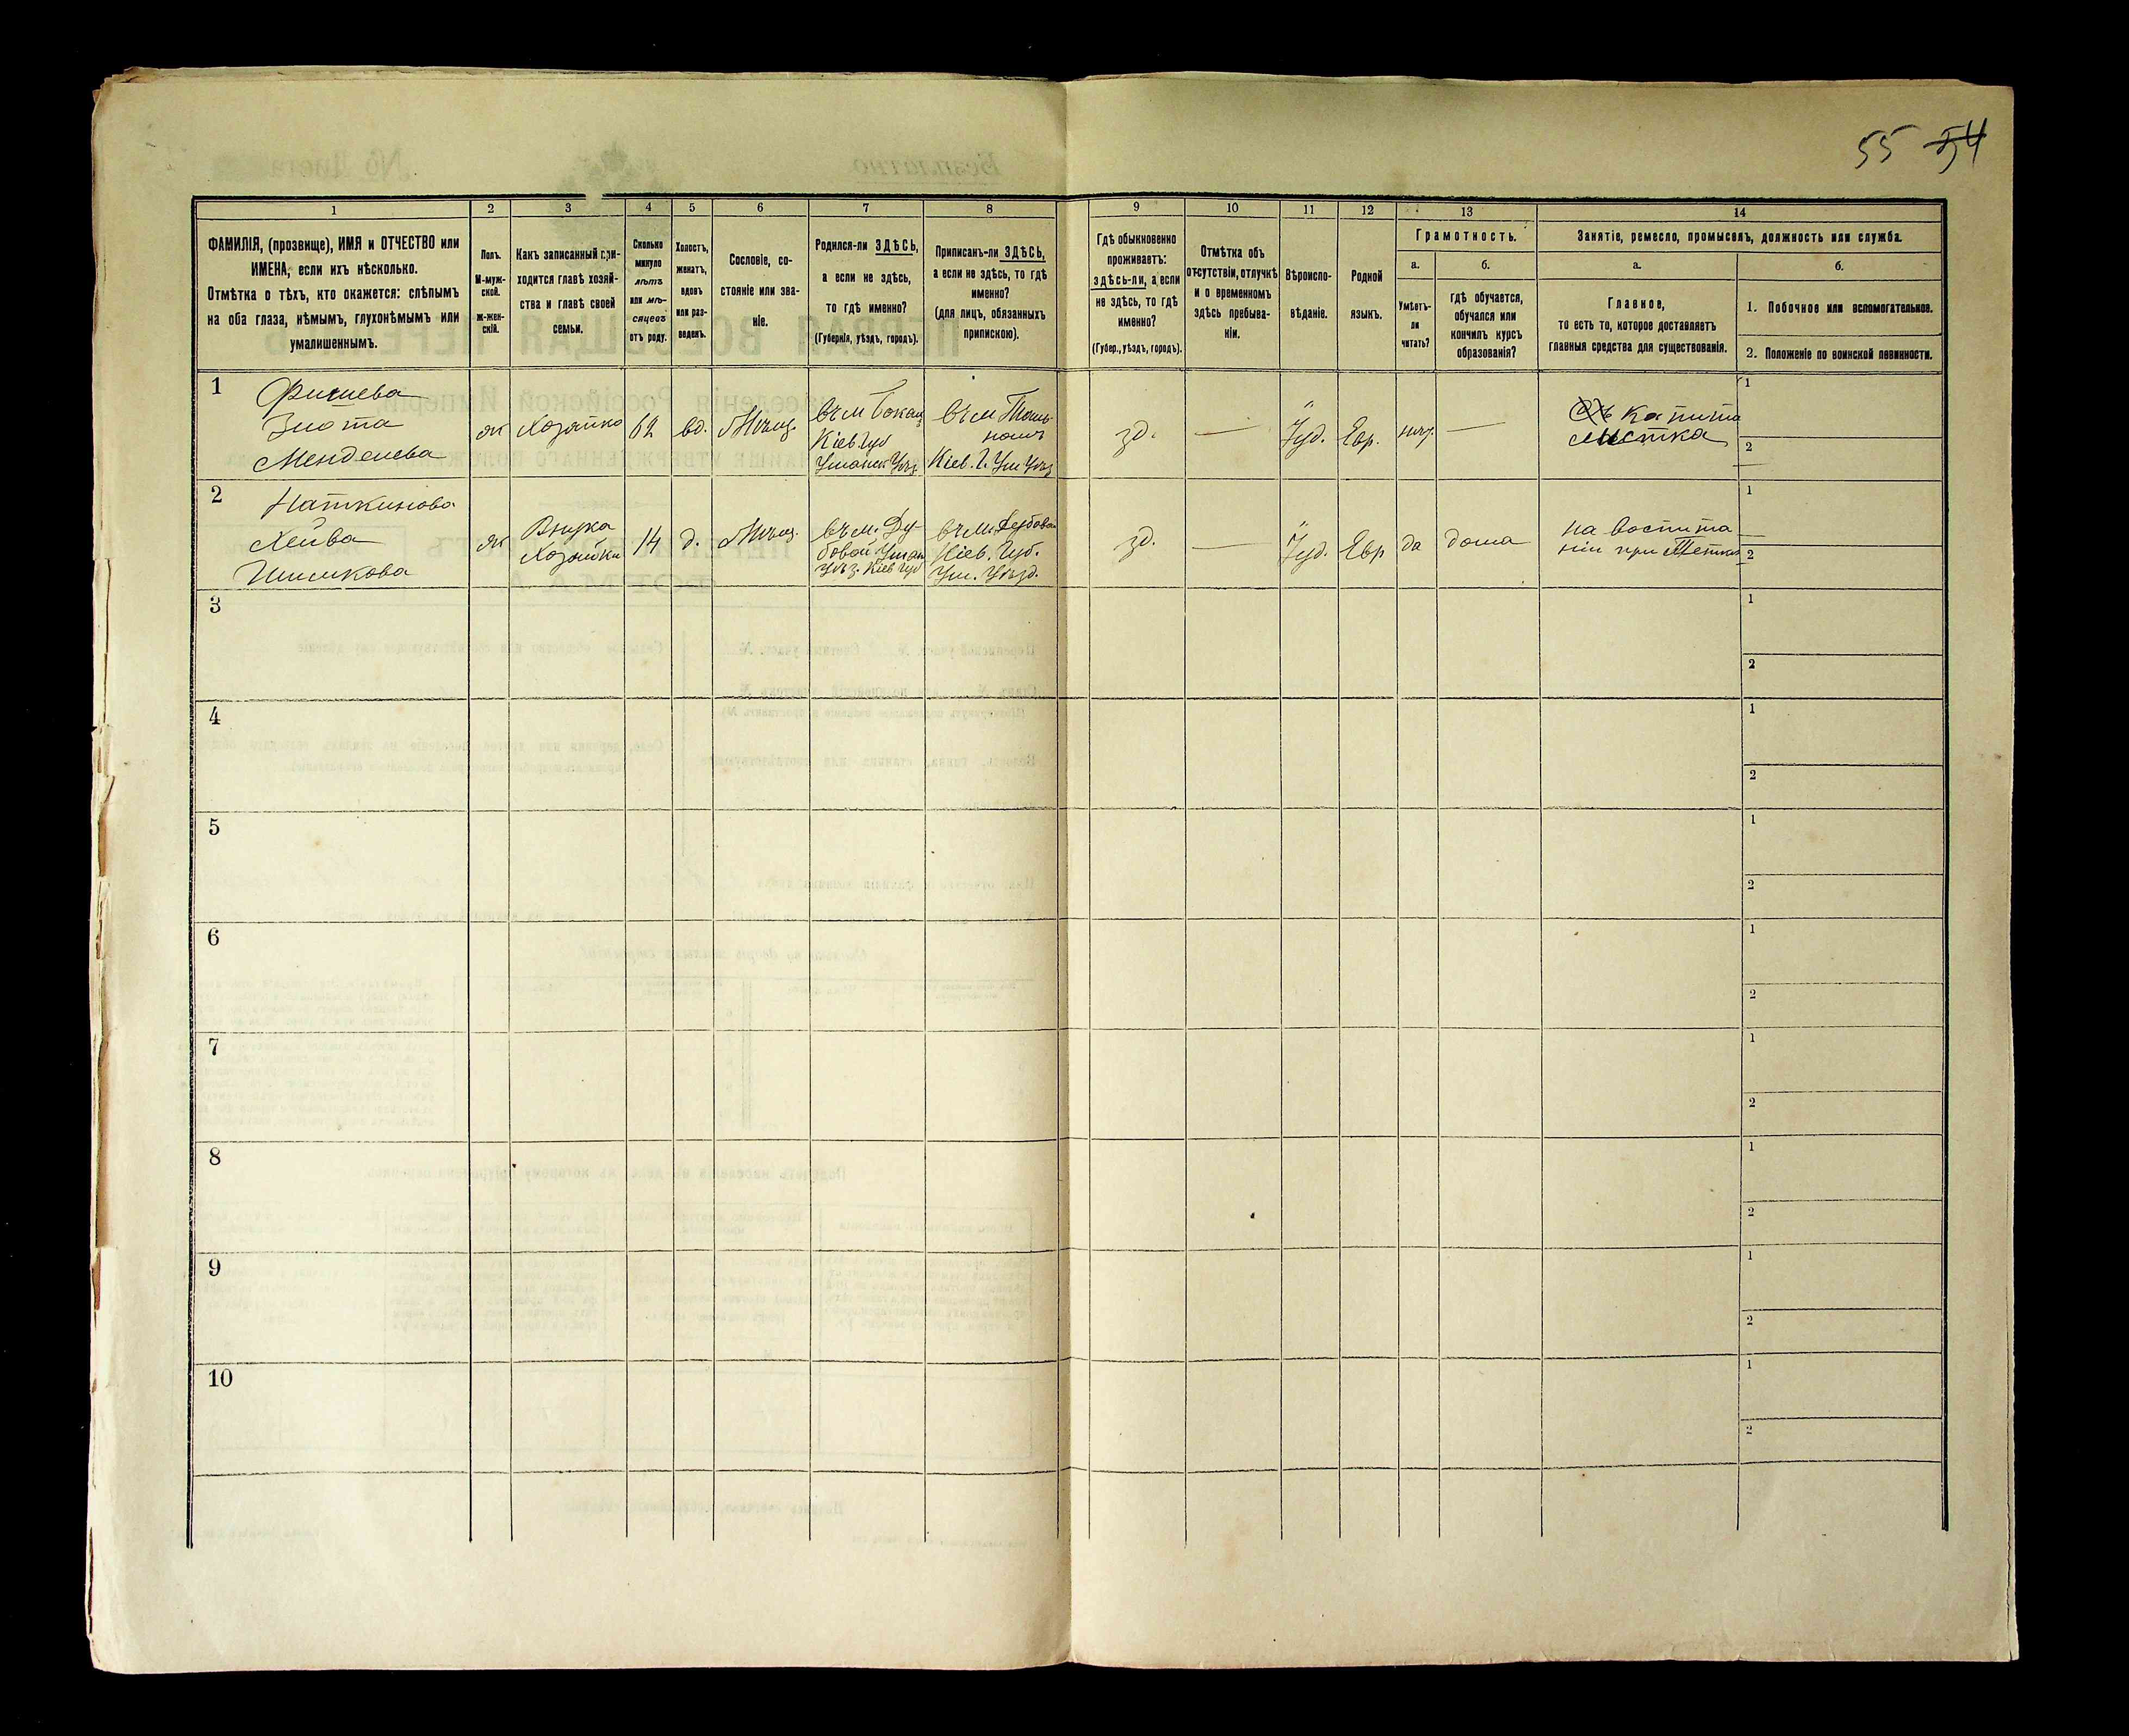 55 54
1
2
3
4
5
6
7
8
9
10
11
12
13
14
ФАМИЛІЯ, (прозвище), ИМЯ и ОТЧЕСТВО или
ИМЕНА, если ихъ нѣсколько.
Отмѣтка о тѣхъ, кто окажется: слѣпымъ
на оба глаза, нѣмымъ, глухонѣмымъ или
умалишеннымъ.
Полъ.
М-муж-
ской.
Ж-жен-
скій.
Какъ записанный при-
ходится главѣ хозяй-
ства и главѣ своей
семьи.
Сколько
минуло
лѣтъ
или мѣ-
сяцевъ
отъ роду.
Холостъ,
женатъ,
вдовъ
или раз-
веденъ.
Сословіе, со-
стояніе или зва-
ніе.
Родился-ли ЗДѢСЬ,
а если не здѣсь,
то гдѣ именно?
(Губернія, уѣздъ, городъ).
Приписанъ-ли ЗДѢСЬ,
а если не здѣсь, то гдѣ
именно?
(для лицъ, обязанныхъ
припискою).
Гдѣ обыкновенно
проживаетъ:
здѣсь-ли, а если
не здѣсь, то гдѣ
именно?
(Губер., уѣздъ, городъ).
Отмѣтка объ
отсутствіи, отлучкѣ
и о временномъ
здѣсь пребыва-
ніи.
Вѣроиспо-
вѣданіе.
Родной
языкъ.
Грамотность.
а.
Умѣетъ-
ли
читать?
б.
гдѣ обучается,
обучался или
кончилъ курсъ
образованія?
Занятіе, ремесло, промыселъ, должность или служба.
а.
Главное,
то есть то, которое доставляетъ
главныя средства для существованія.
б.
1. Побочное или вспомогательное.
2. Положеніе по воинской повинности.
1
Фишева
Злота
Менделева
ж
Хозяйка
62
вд.
Мѣщ.
Въ м
Кіев Губ
Уманск Уѣз
Въ м
Кіев. Г. Ум Уѣз
зд.
—
Іуд.
Евр.
нѣт.
—
капита
листка
1
2
2
Наткинова
Хейва
Шимкова
ж
Внука
Хозяйки
14
д.
Мѣщ.
въ м. Ду-
бовой Уман
Уѣз. Кіев Губ
въ м. Дубовой
Кіев. Губ.
Ум. Уѣзд.
зд.
—
Іуд.
Евр
да
дома
на воспита
ніи при Теткѣ
1
2
3
1
2
4
1
2
5
1
2
6
1
2
7
1
2
8
1
2
9
1
2
10
1
2